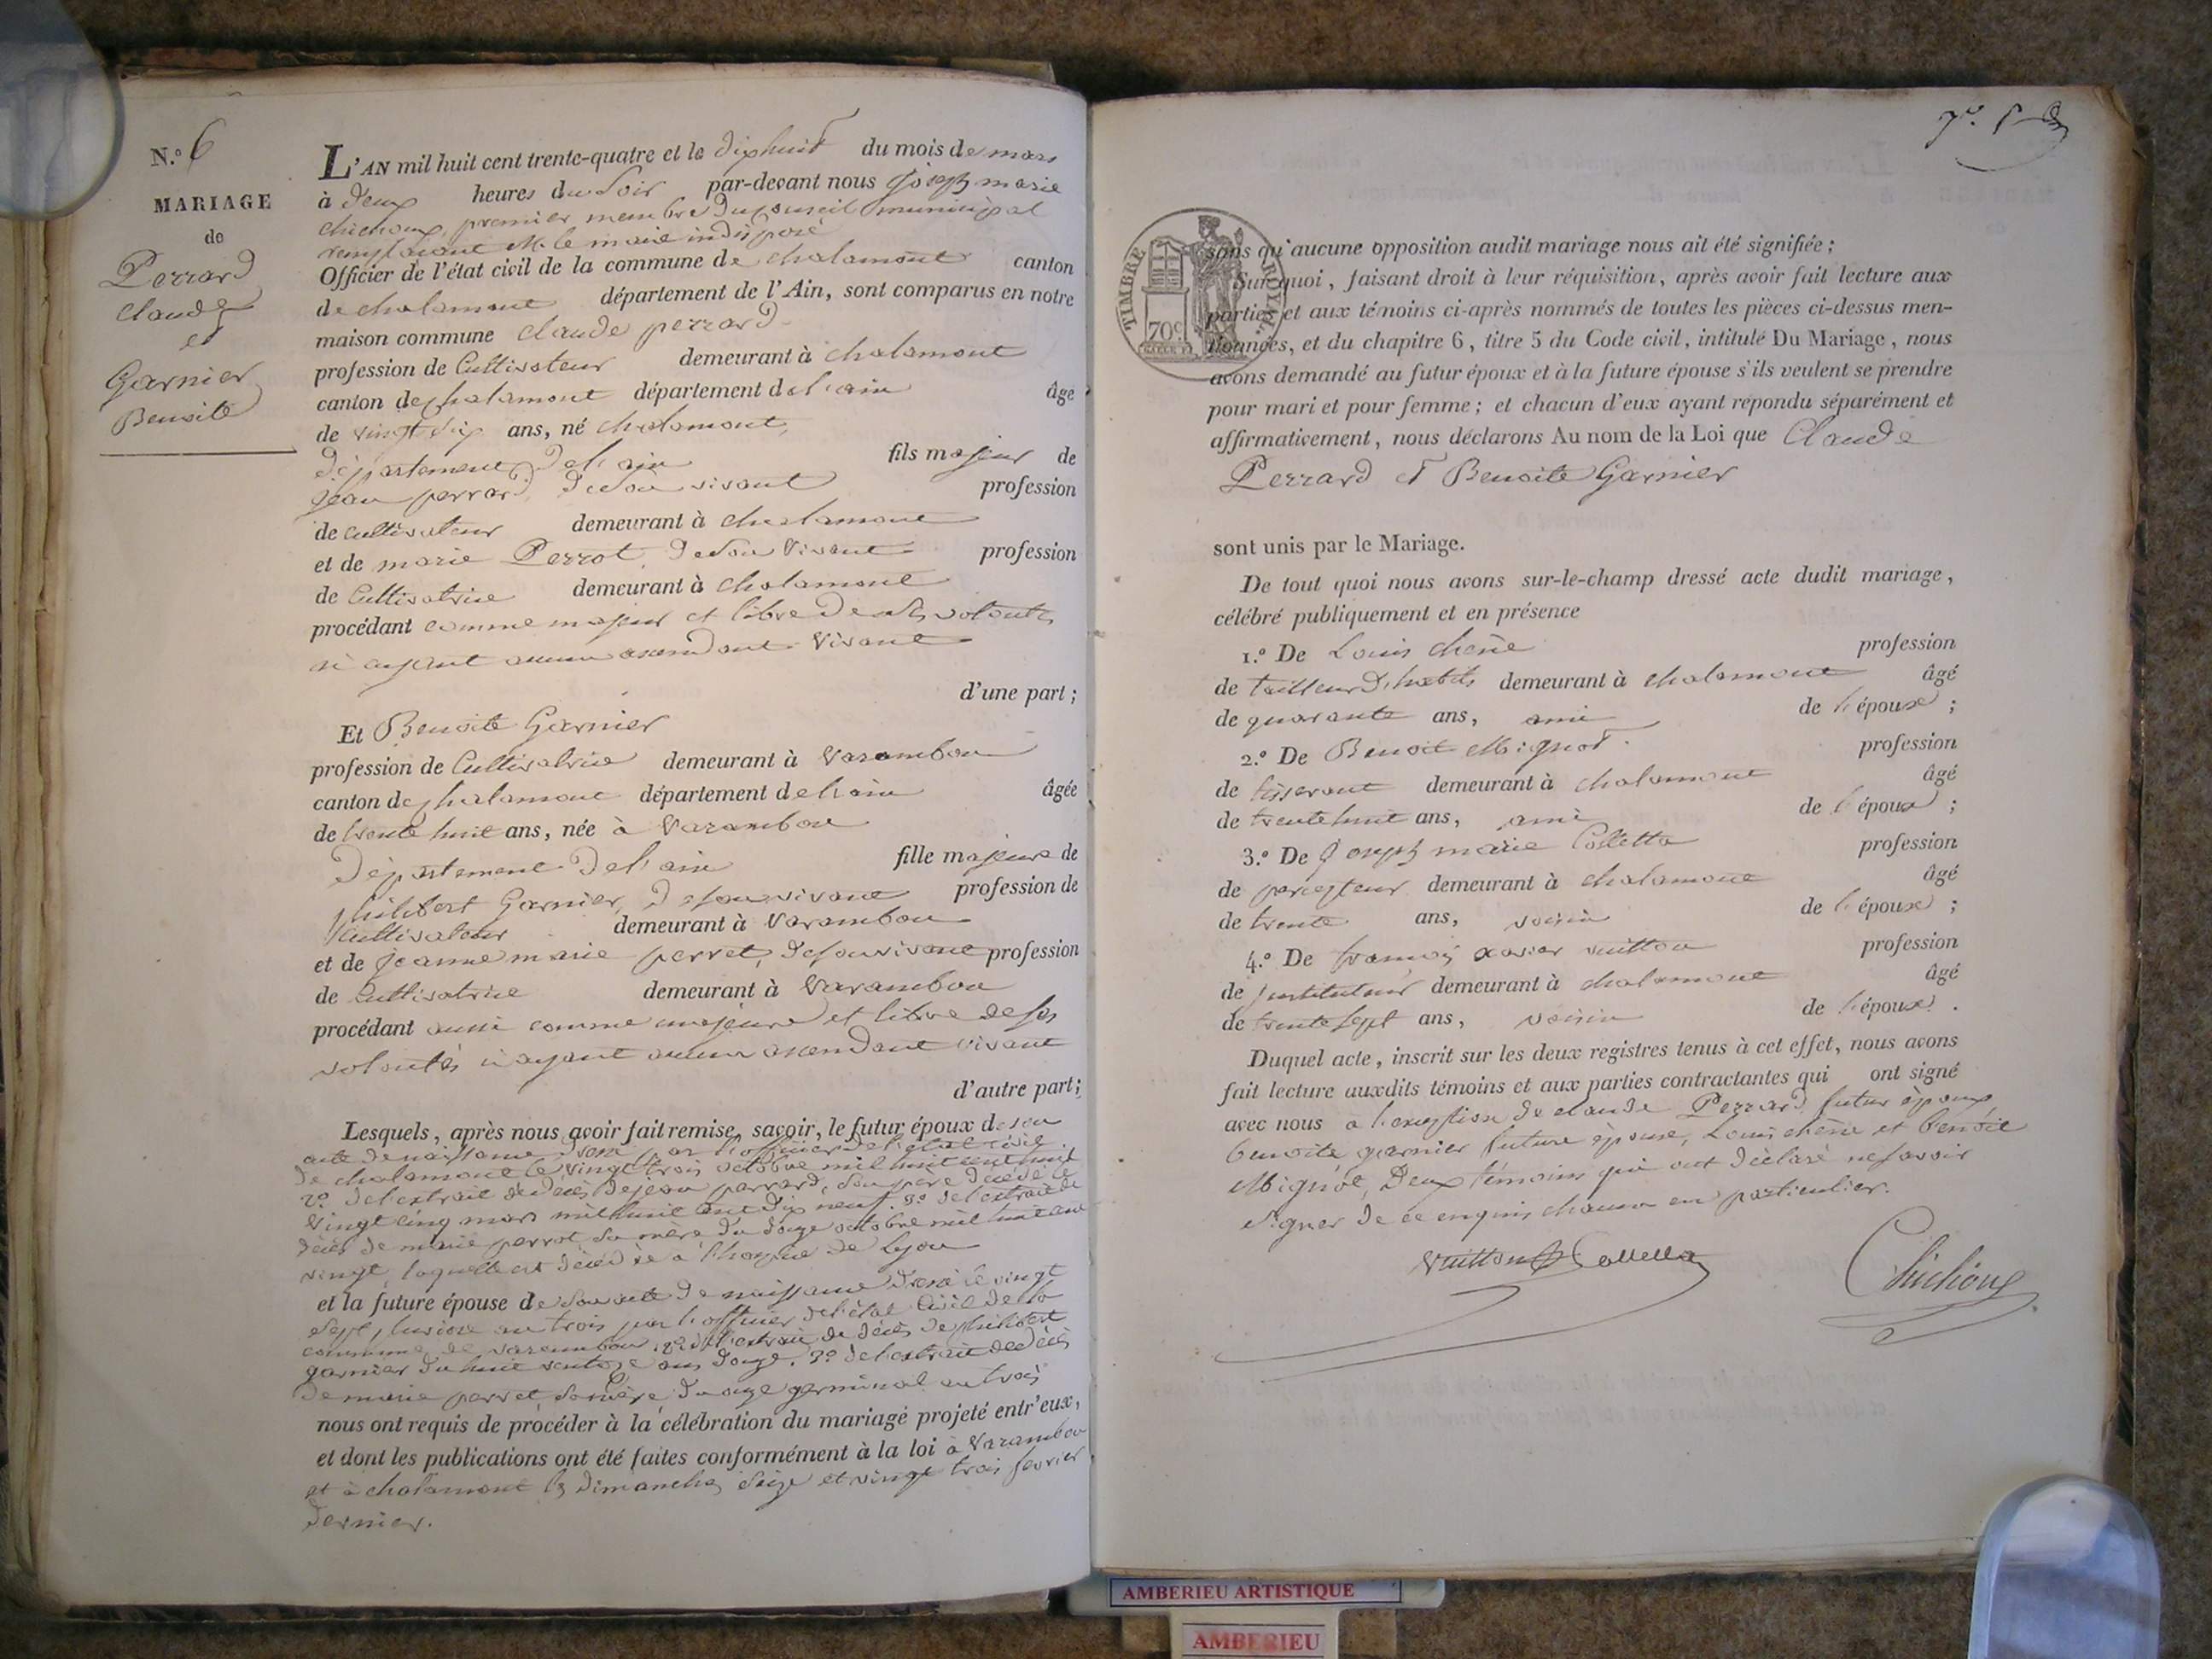 N.º 6
MARIAGE
de
Perrard
Claude
et
Garnier
Benoite
L'AN mil huit cent trente-quatre et le dixhuit du mois de mars
à deux heures du soir par-devant nous Joseph marie
chichoux, premier membre du conseil municipal
remplaçant M. le maire indisposé
Officier de l'état civil de la commune de chalamont canton
de chalamont département de l'Ain, sont comparus en notre
maison commune claude perrard
profession de Cultivateur demeurant à chalamont
canton de chalamont département de l'ain âgé
de vingt six ans, né chalamont,
département de l'ain fils majeur de
Jean perrard, de son vivant profession
de cultivateur demeurant à chalamont
et de marie Perrot, de son vivant profession
de Cultivatrice demeurant à chalamont
procédant comme majeur et libre de ses volontés
n'ayant aucun ascendant vivant
d'une part ;
Et Benoite Garnier
profession de Cultivatrice demeurant à Varambon
canton de chalamont département de l'ain âgée
de trente huit ans, née à Varambon
département de l'ain fille majeure de
philibert Garnier, de son vivant profession de
Cultivateur demeurant à Varambon
et de Jeanne marie perret, de son vivant profession
de Cultivatrice demeurant à Varambon
procédant aussi comme majeure et libre de ses
volontés n'ayant aucun ascendant vivant
d'autre part ;
Lesquels, après nous avoir fait remise, savoir, le futur époux de son
acte de naissance dressé par l'officier de l'état civil
de chalamont le vingt trois octobre mil huit cent huit
2.º de l'extrait de décès de jean perrard, son père décédé le
vingt cinq mars mil huit cent dix neuf. 3.º de l'extrait de
décès de marie perrot sa mère du douze octobre mil huit cent
vingt, laquelle est décédée à l'hospice de Lyon
et la future épouse de son acte de naissance dressé le vingt
sept pluviose an trois par l'officier de l'état civil de la
commune de varambon, 2.º de l'extrait de décès de philibert
garnier du huit ventose an douze. 3.º de l'extrait de décès
de marie perret, sa mère, du onze germinal an trois
nous ont requis de procéder à la célébration du mariage projeté entr'eux,
et dont les publications ont été faites conformément à la loi à Varambon
et à chalamont les dimanches seize et vingt trois fevrier
dernier.
TIMBRE ROYAL
70c
sans qu'aucune opposition audit mariage nous ait été signifiée ;
Sur quoi, faisant droit à leur réquisition, après avoir fait lecture aux
parties et aux témoins ci-après nommés de toutes les pièces ci-dessus men-
tionnées, et du chapitre 6, titre 5 du Code civil, intitulé Du Mariage, nous
avons demandé au futur époux et à la future épouse s'ils veulent se prendre
pour mari et pour femme ; et chacun d'eux ayant répondu séparément et
affirmativement, nous déclarons Au nom de la Loi que Claude
Perrard et Benoite Garnier
sont unis par le Mariage.
De tout quoi nous avons sur-le-champ dressé acte dudit mariage,
célébré publiquement et en présence
1.º De Louis chêne profession
de tailleur d'habits demeurant à chalamont âgé
de quarante ans, ami de l'époux ;
2.º De Benoit Mignot. profession
de tisserant demeurant à chalamont âgé
de trente huit ans, ami de l'époux ;
3.º De Joseph marie Colletta profession
de percepteur demeurant à chalamont âgé
de trente ans, voisin de l'époux ;
4.º De françois xavier vuitton profession
de instituteur demeurant à chalamont âgé
de trente sept ans, voisin de l'époux .
Duquel acte, inscrit sur les deux registres tenus à cet effet, nous avons
fait lecture auxdits témoins et aux parties contractantes qui ont signé
avec nous à l'exception de claude Perrard futur époux,
benoite garnier future épouse, Louis chêne et benoit
Mignot, Deux témoins qui ont déclaré ne savoir
signer de ce enquis chacun en particulier.
Vuitton Colletta
Chichoux
AMBERIEU ARTISTIQUE
AMBERIEU